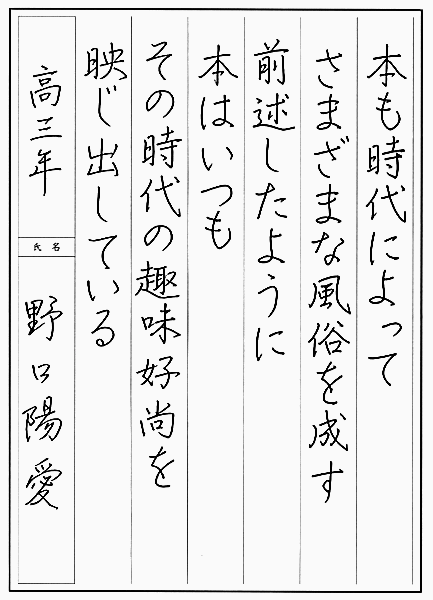 本も時代によって
さまざまな風俗を成す
前述したように
本はいつも
その時代の趣味好尚を
映じ出している
高三年
氏名
野口陽愛